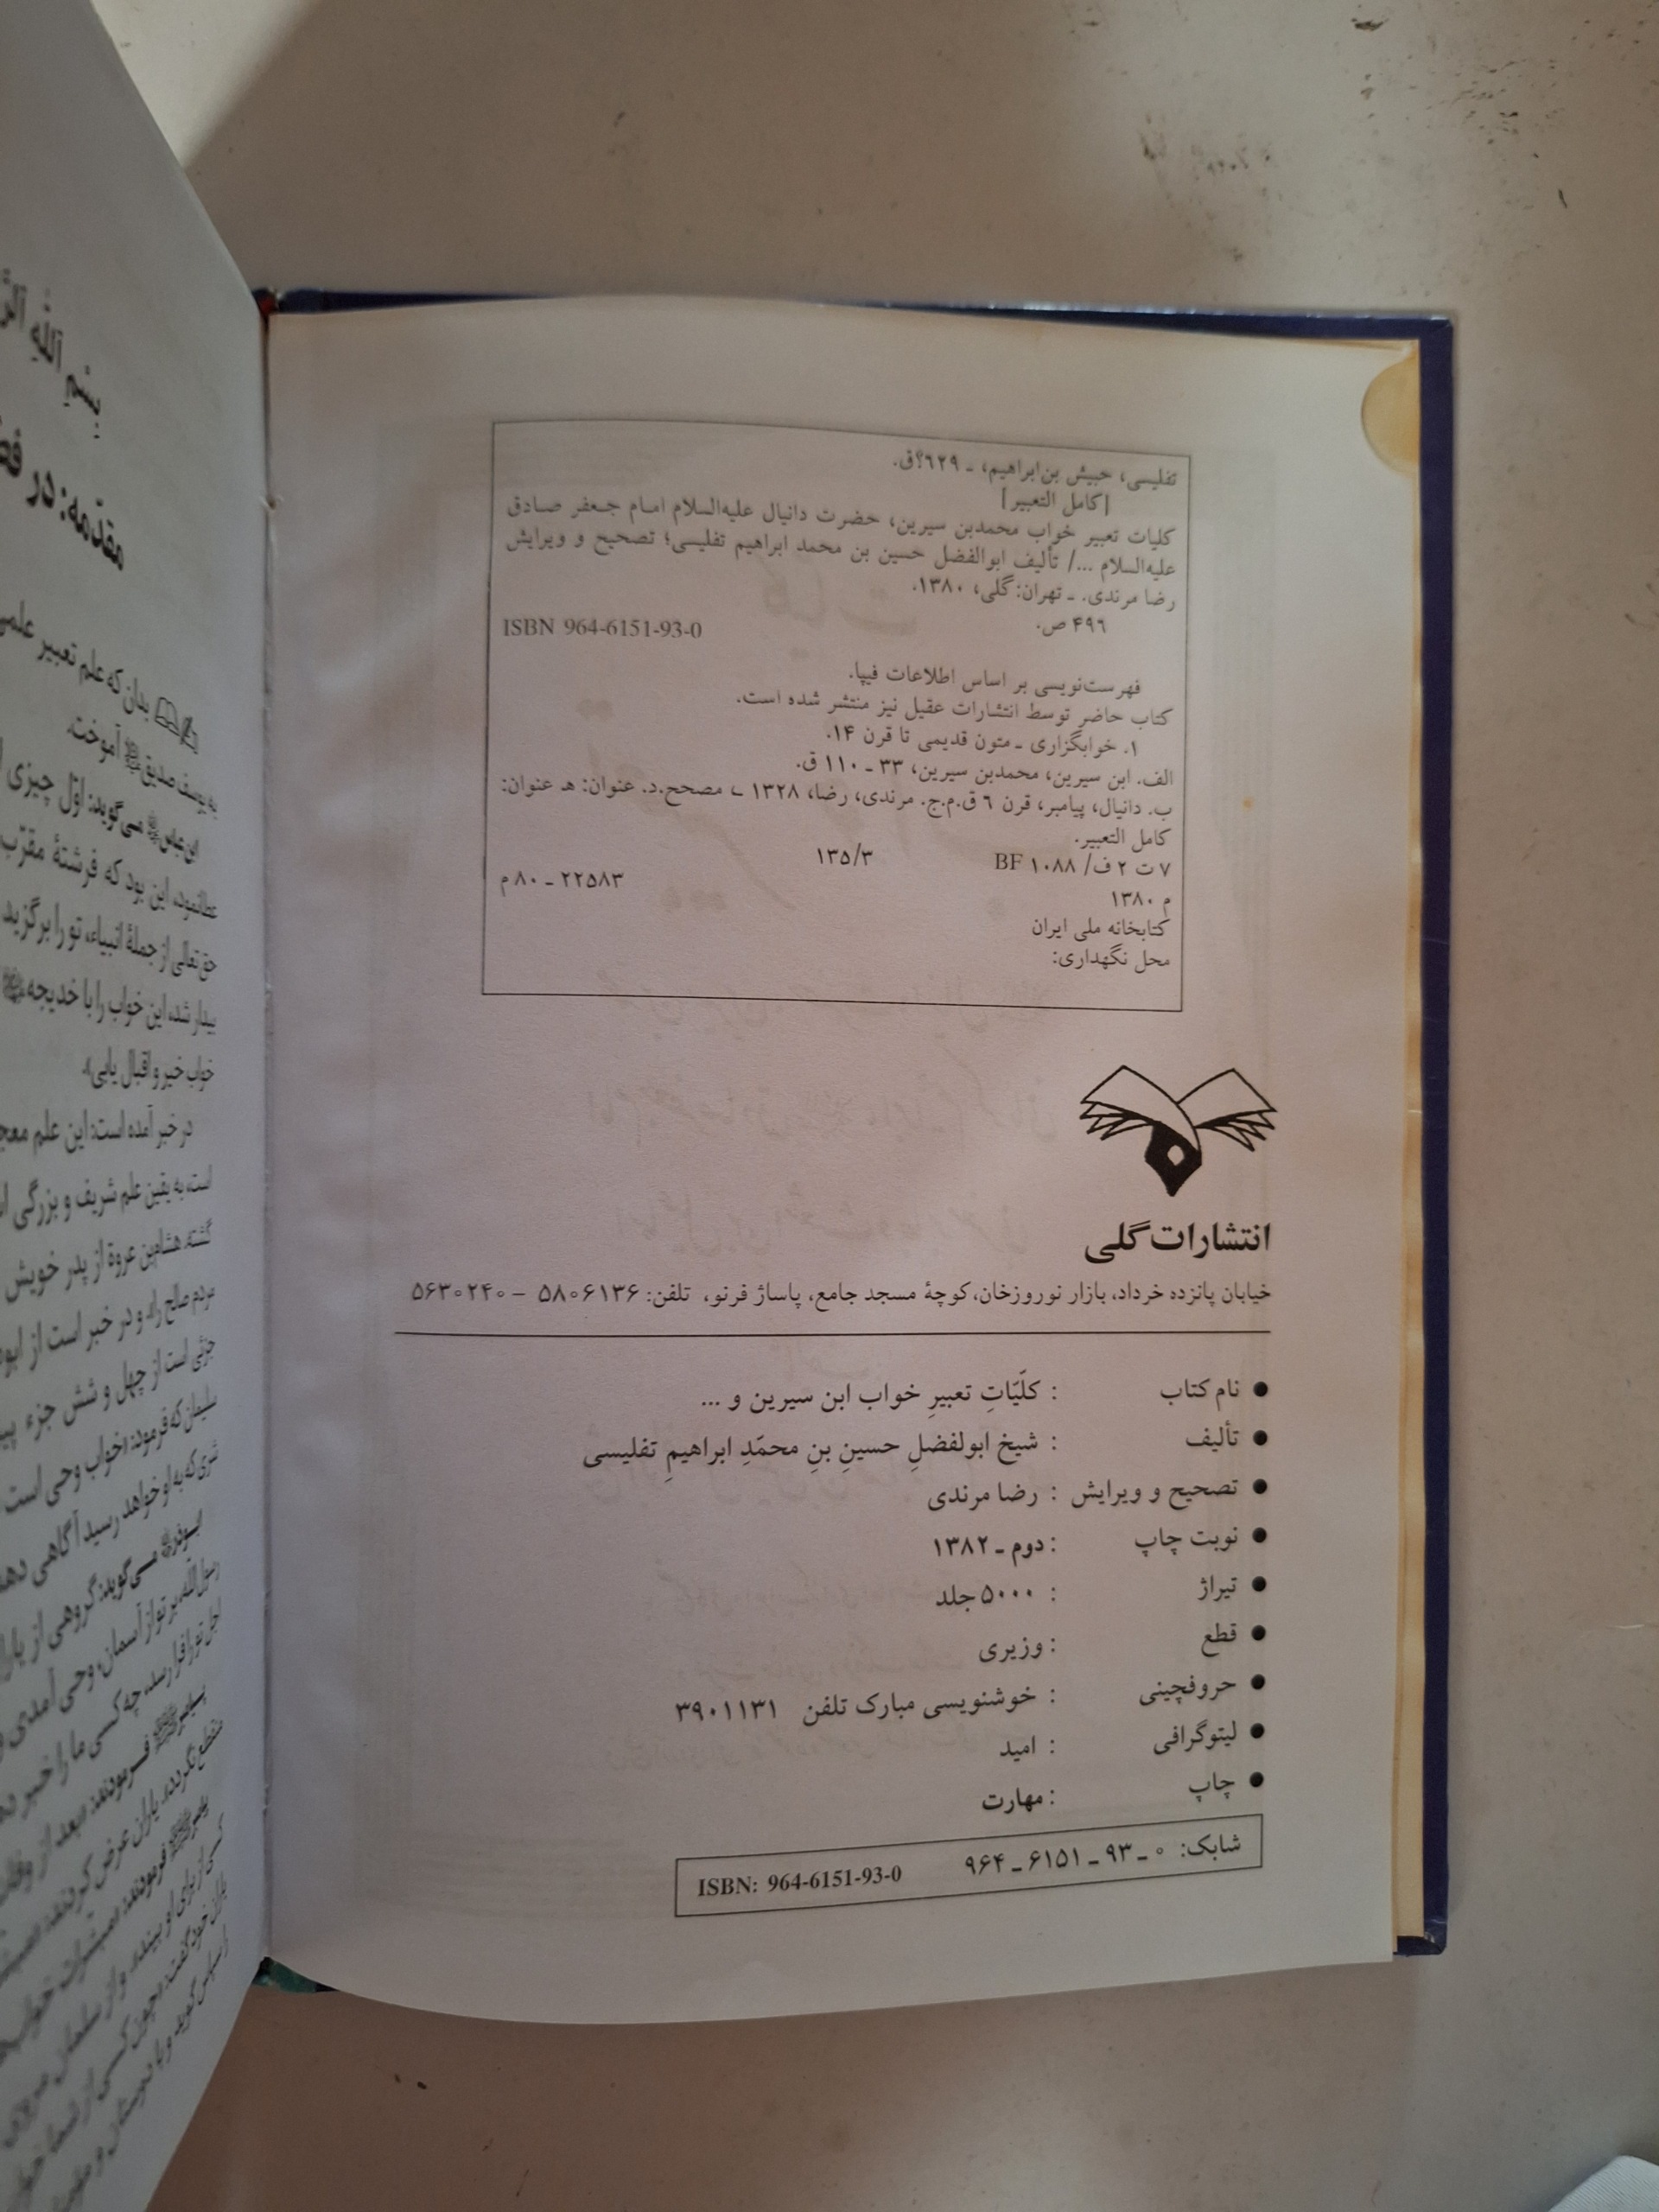 تفلیسی، حبیش بن‌ابراهیم، ـ ٦٢٩؟ق.
[کامل التعبیر]
کلیات تعبیر خواب محمدبن سیرین، حضرت دانیال علیه‌السلام امام جعفر صادق
علیه‌السلام .../ تألیف ابوالفضل حسین بن محمد ابراهیم تفلیسی؛ تصحیح و ویرایش
رضا مرندی. ـ تهران: گلی، ۱۳۸۰.
۴۹۶ ص. ISBN 964-6151-93-0
فهرست‌نویسی بر اساس اطلاعات فیپا.
کتاب حاضر توسط انتشارات عقیل نیز منتشر شده است.
۱. خوابگزاری ـ متون قدیمی تا قرن ۱۴.
الف. ابن سیرین، محمدبن سیرین، ۳۳ ـ ۱۱۰ ق.
ب. دانیال، پیامبر، قرن ٦ ق.م.ج. مرندی، رضا، ۱۳۲۸ ـ مصحح.د. عنوان: هـ عنوان:
کامل التعبیر.
۷ ت ۲ ف/ BF ۱۰۸۸ ۱۳۵/۳
م ۱۳۸۰ ۲۲۵۸۳ ـ ۸۰ م
کتابخانه ملی ایران
محل نگهداری:
انتشارات گلی
خیابان پانزده خرداد، بازار نوروزخان، کوچهٔ مسجد جامع، پاساژ فرنو، تلفن: ۵۸۰۶۱۳۶ – ۵۶۳۰۲۴۰
● نام کتاب : کلّیّاتِ تعبیرِ خواب ابن سیرین و ...
● تألیف : شیخ ابولفضلِ حسینِ بنِ محمّدِ ابراهیمِ تفلیسی
● تصحیح و ویرایش : رضا مرندی
● نوبت چاپ : دوم ـ ۱۳۸۲
● تیراژ : ۵۰۰۰ جلد
● قطع : وزیری
● حروفچینی : خوشنویسی مبارک تلفن ۳۹۰۱۱۳۱
● لیتوگرافی : امید
● چاپ : مهارت
شابک: ۰ ـ ۹۳ ـ ۶۱۵۱ ـ ۹۶۴ ISBN: 964-6151-93-0
بدان که علم تعبیر
به یوسف صدیق آموخت.
ابن عباس می‌گوید: اوّل چیزی
این بود که فرشتهٔ مقرّب
حق تعالی از جملهٔ انبیاء، تو را برگزید
بیدار شد، این خواب را با خدیجه
خواب خیر و اقبال یابی».
در خبر آمده است: این علم
است، به یقین علم شریف و بزرگی
گشته. هشام‌بن عروة از پدر خویش
مردم صالح راه، و در خبر است از
جزئی است از چهل و شش جزء
سلیمان که فرمود: «خواب وحی است
که به او خواهد رسید آگاهی
ابوذر می‌گوید: گروهی از
رسول‌الله، بر تو از آسمان، وحی آمدی
چه کسی ما را خبر